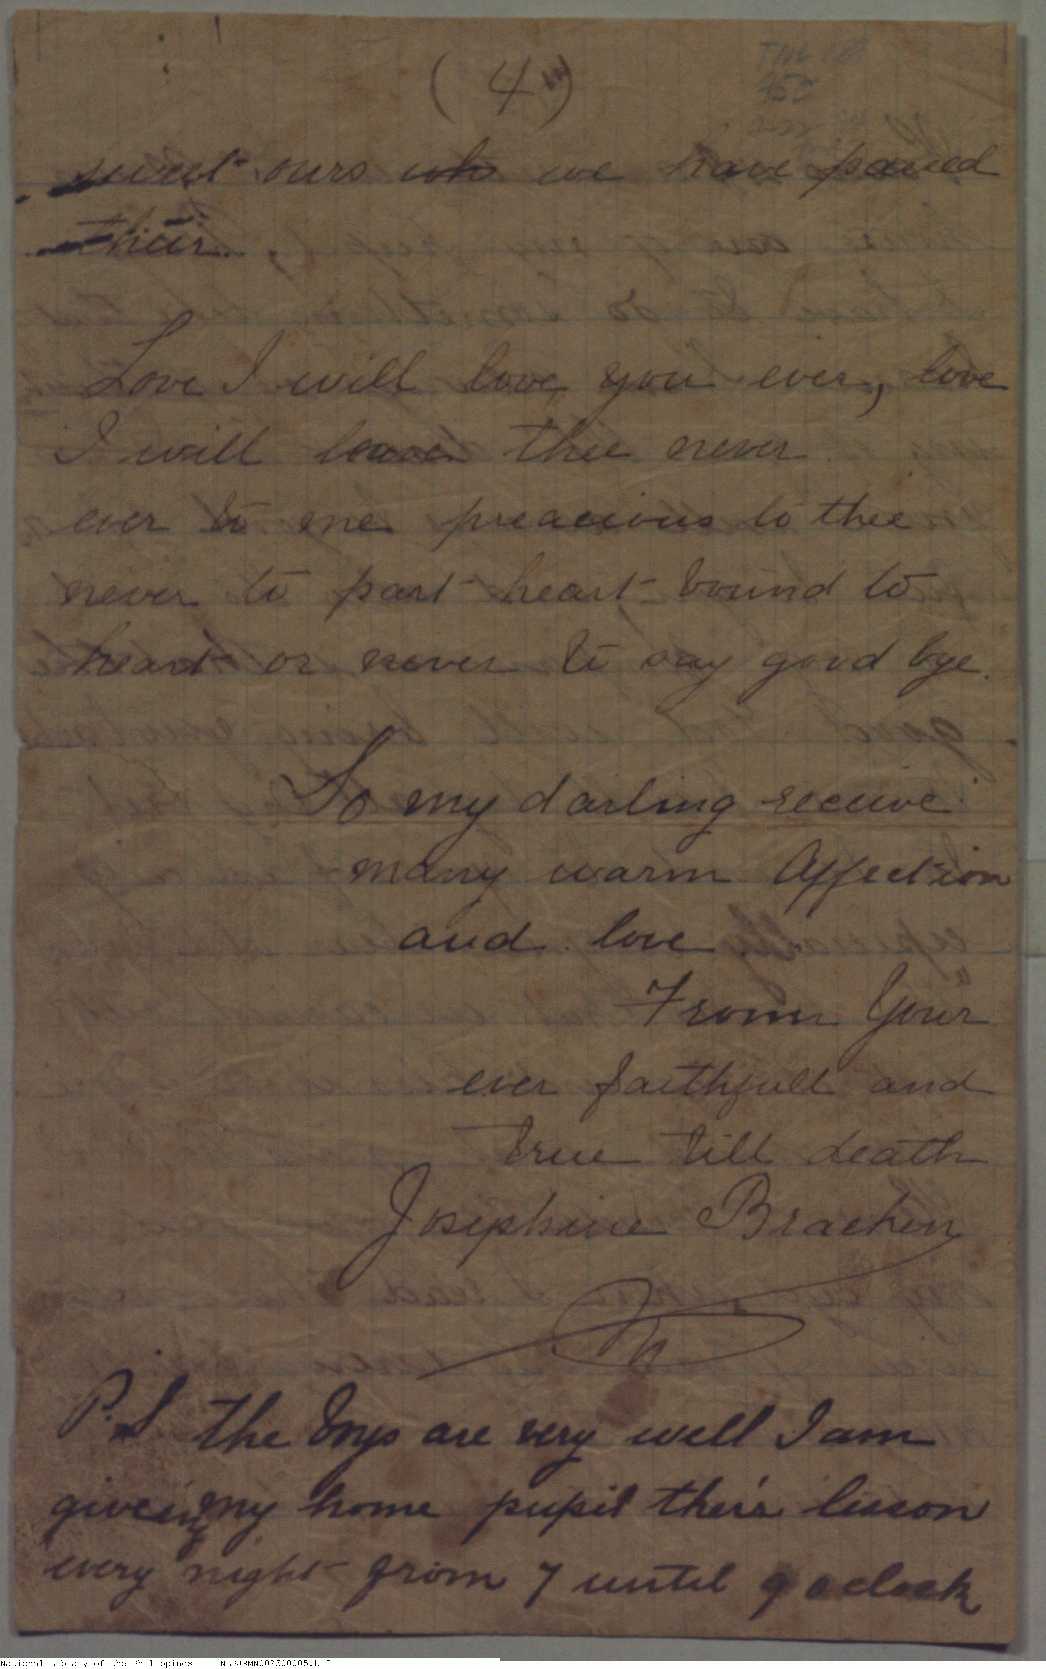 (4)
sweet ours who we have passed
their.
Love I will love you ever, love
I will leave thee never
ever to me preacious to thee
never to part heart bound to
heart or never to say good bye.
So my darling receive
many warm Affection
and love
From Your
ever faithfull and
true till death
Josephine Bracken
P.S the Boys are very well I am
giveing my home pupil their lisson
every night from 7 until 9 oclock
National Library of the Philippines